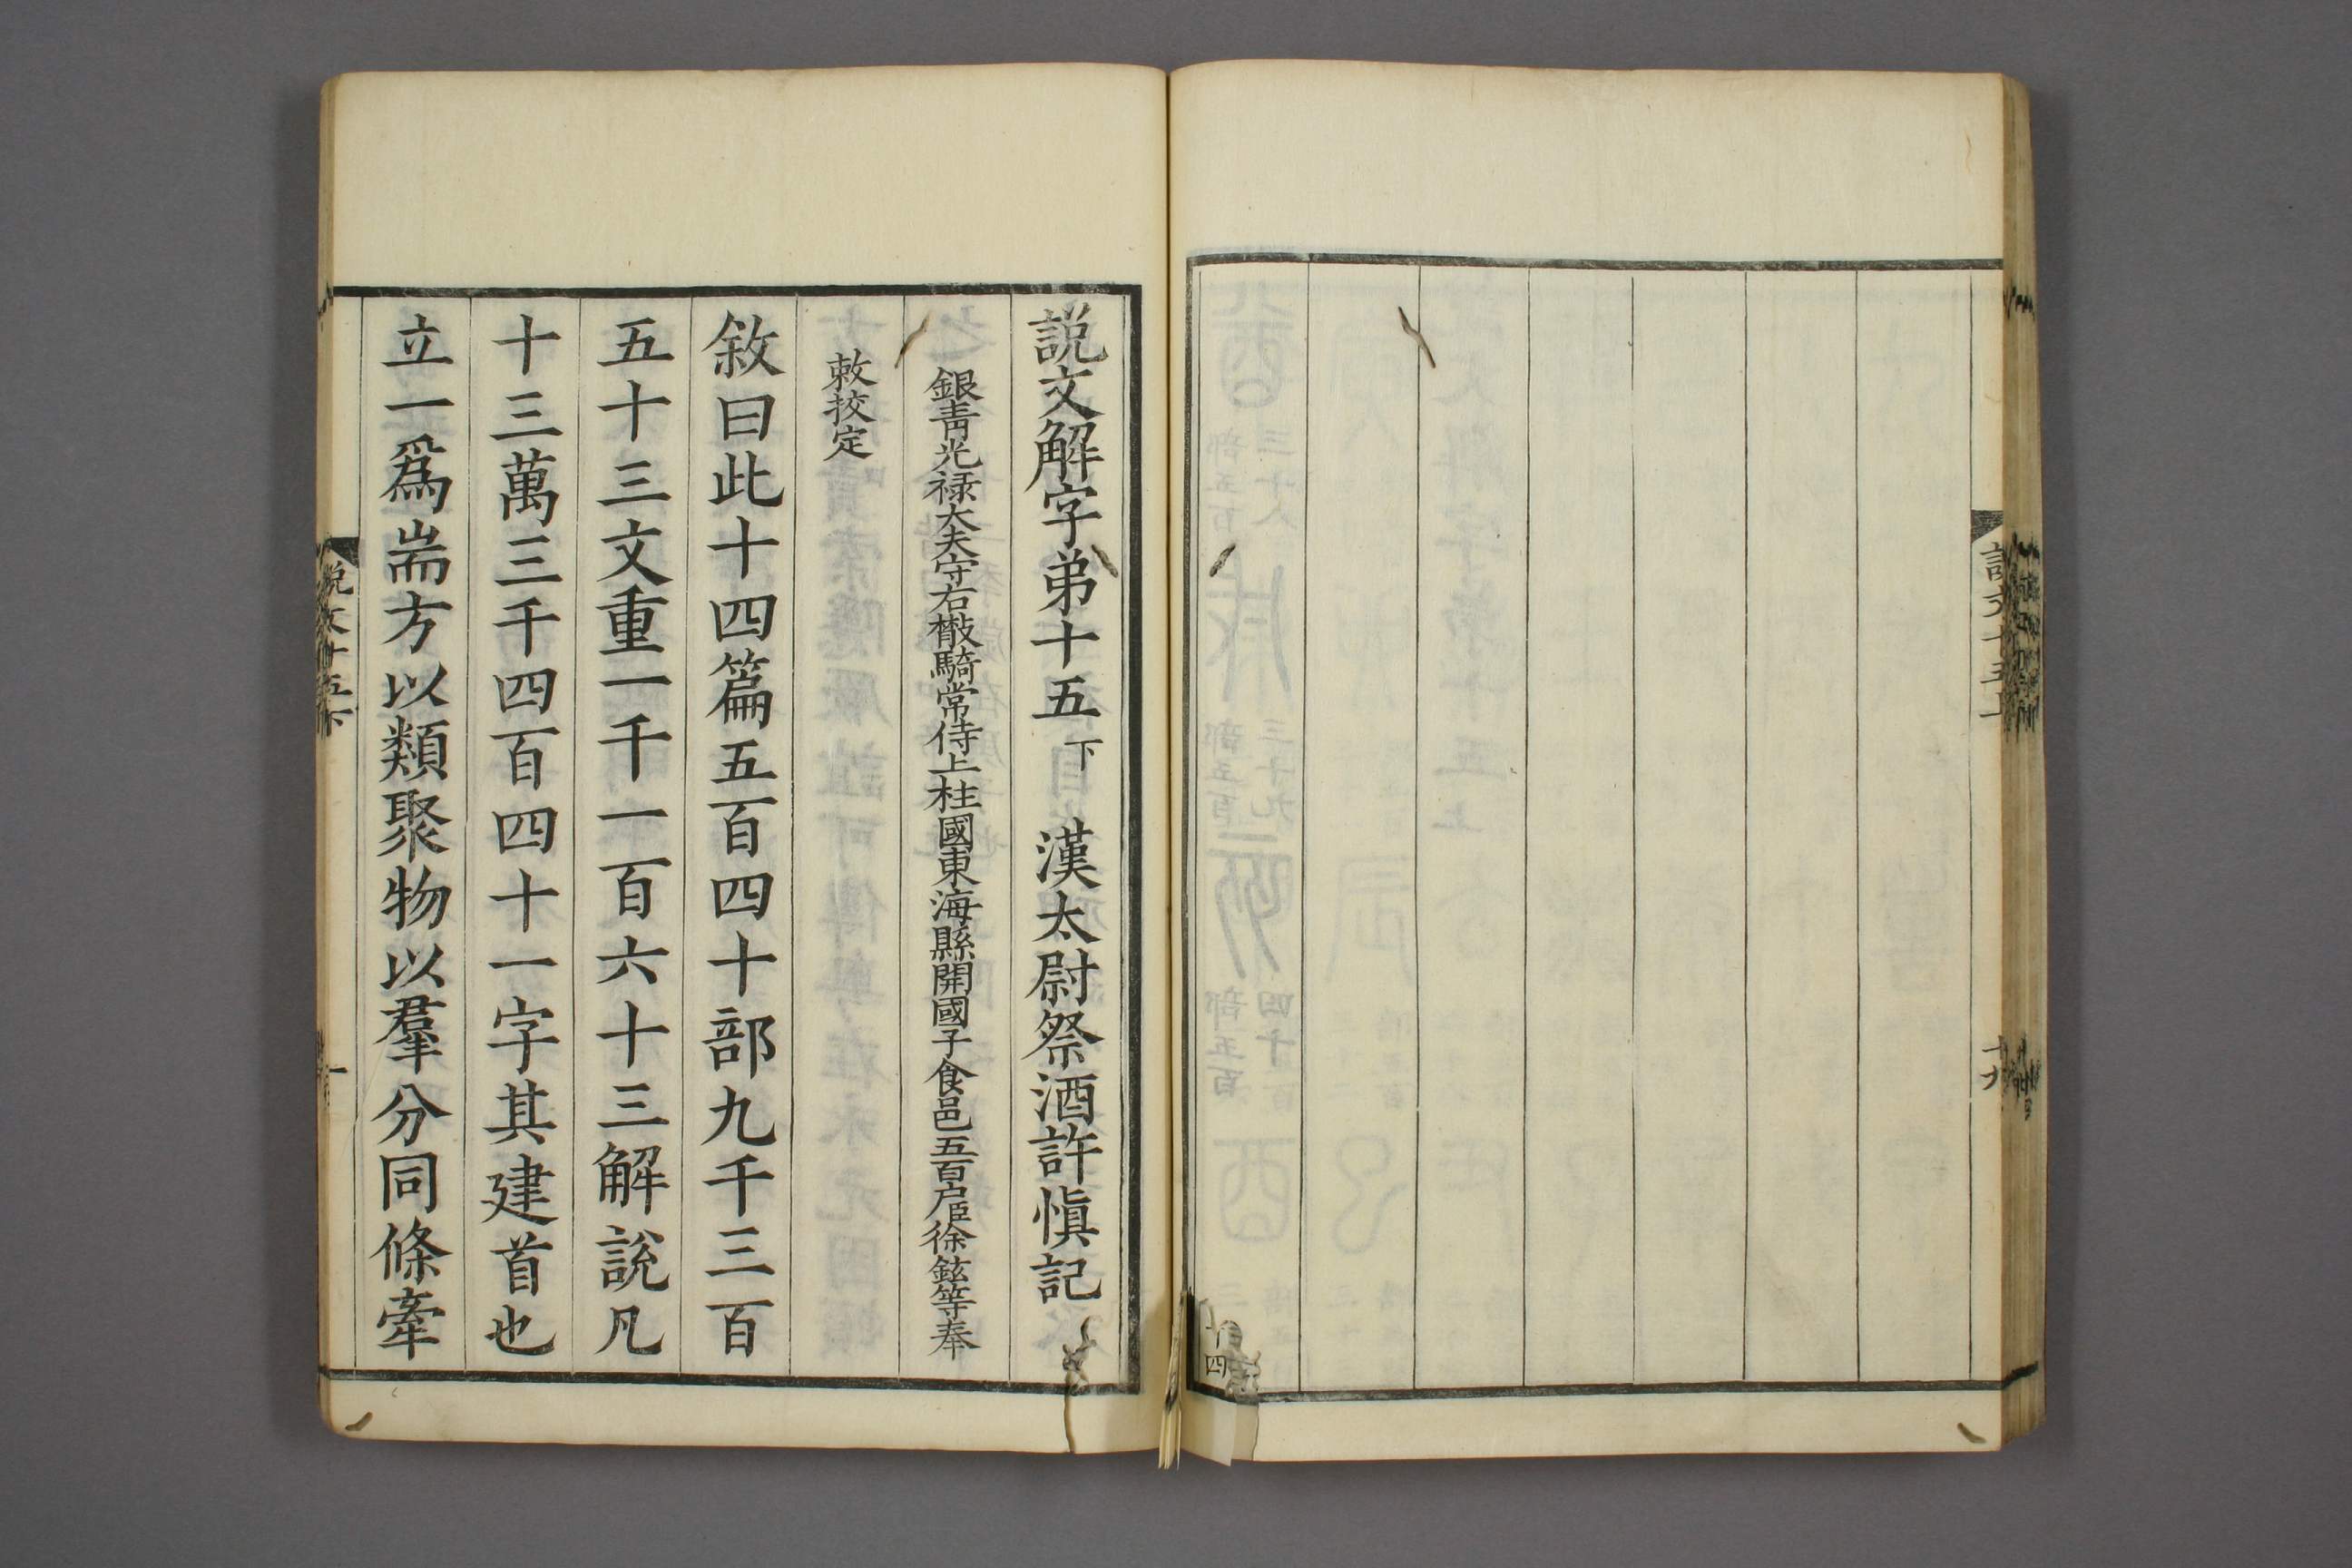 説文十五上
十九
十四
説文解字弟十五下 漢太尉祭酒許愼記
銀青光禄大夫守右散騎常侍上柱國東海縣開國子食邑五百户臣徐鉉等奉
敕挍定
敘曰此十四篇五百四十部九千三百
五十三文重一千一百六十三解說凡
十三萬三千四百四十一字其建首也
立一爲耑方以類聚物以羣分同條牽
説文十五下
一